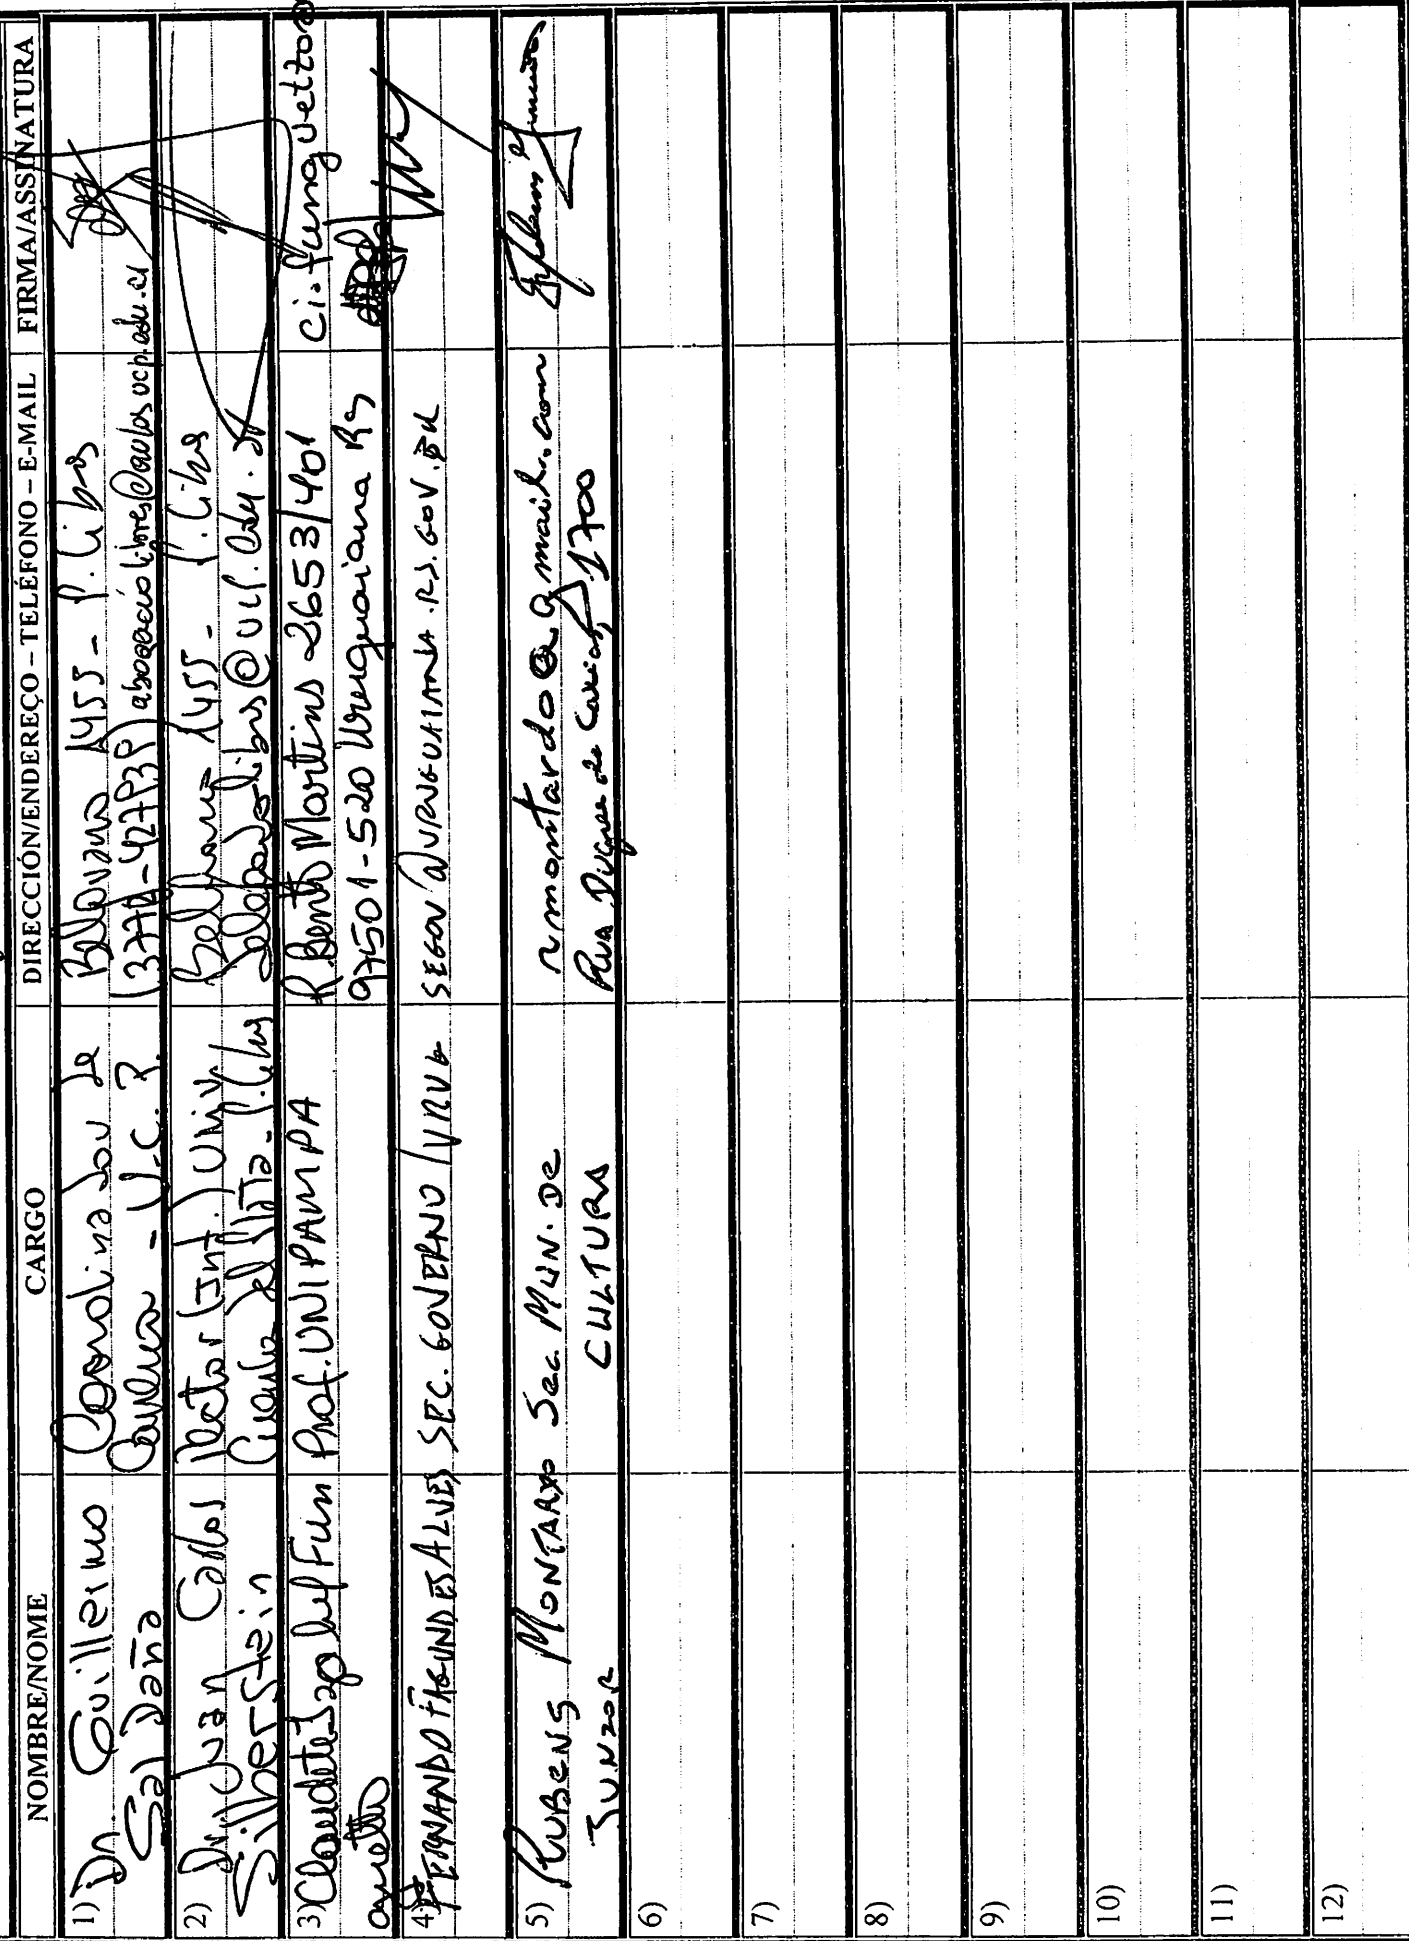 NOMBRE/NOME CARGO DIRECCIÓN/ENDEREÇO – TELÉFONO – E-MAIL FIRMA/ASSINATURA
1) Dr. Guillermo
Saldaña
Coordinador de
Carrera - U.C.P.
Belgrano 1455 - P. Libres
2) Dr. Juan Carlos
Silberstein
Rector (Int.) Univ.
Cuenca del Plata - P. Libres
Belgrano 1455 - P. Libres
3) Claudete Izabel Fun
guetto
Prof. UNIPAMPA
R. Bento Martins 2653/401
97501-520 Uruguaiana RS
ci.funguetto@
4) FERNANDO FAGUNDES ALVES
SEC. GOVERNO / URUG
SEGOV@URUGUAIANA.RS.GOV.BR
5) RUBENS MONTARDO
JUNIOR
Sec. MUN. DE
CULTURA
rmontardo@gmail.com
RUA DUQUE de Caxias, 1700
6)
7)
8)
9)
10)
11)
12)